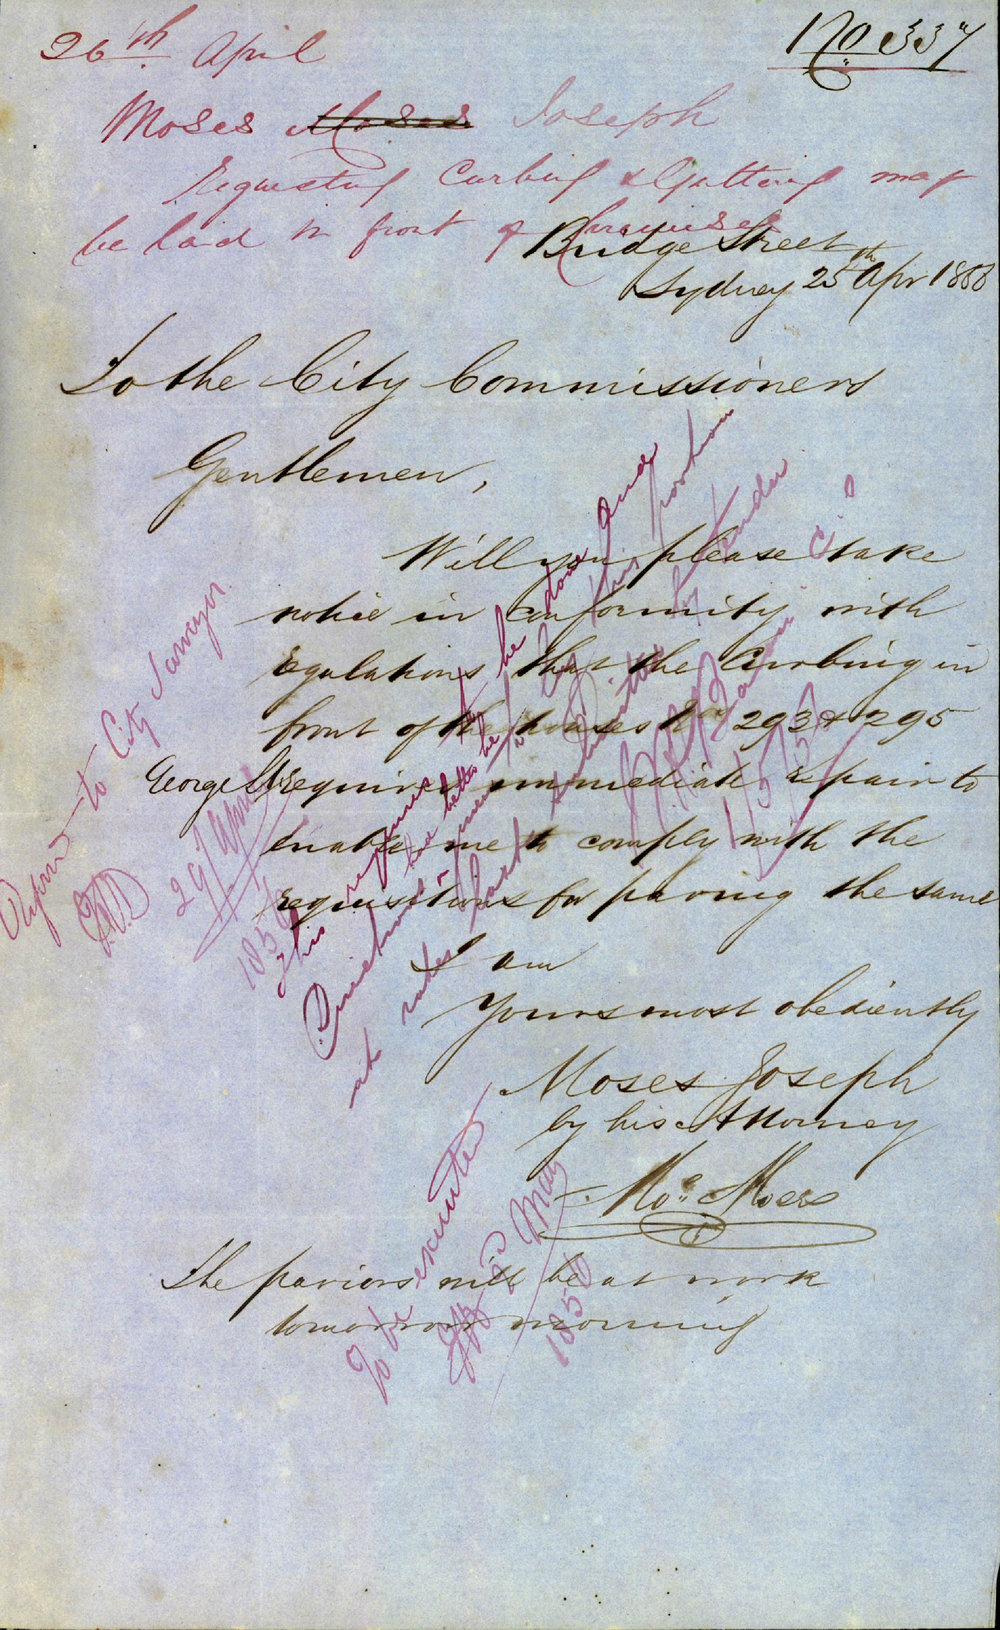 No 337
26th April
Moses Moses Joseph
Requesting Curbing & Guttering may
be laid in front of premises
Bridge Street
Sydney 25th Apr 1856
To the City Commissioners
Gentlemen,
Will you please take
notice in conformity with
regulations that the Curbing in
front of the houses Nos 293 & 295
George St requires immediate repair to
enable me to comply with the
requisitions for paving the same
I am
Yours most obediently
Moses Joseph
by his Attorney
Mos. Moses
The paviors will be at work
tomorrow morning
to City Surveyor
29/April
1856
This requires to be done and
had better be this portion
at
1/5/56
To be executed
2 May
1856